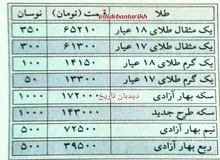 طلا قیمت (تومان) نوسان
validebantarikh@
یک مثقال طلای ۱۸ عیار ۶۵۲۱۰ ۳۵۰
یک مثقال طلای ۱۷ عیار ۶۱۳۰۰ ۳۰۰
یک گرم طلای ۱۸ عیار ۱۴۱۵۰ ۱۰۰
یک گرم طلای ۱۷ عیار ۱۳۳۰۰ ۵۰
سکه بهار آزادی ۱۷۲۰۰۰ ۱۰۰۰
دیدبان تاریخ
سکه طرح جدید ۱۴۳۰۰۰ ۱۰۰۰
نیم بهار آزادی ۷۲۵۰۰ ۵۰۰
ربع بهار آزادی ۳۹۵۰۰ ۵۰۰